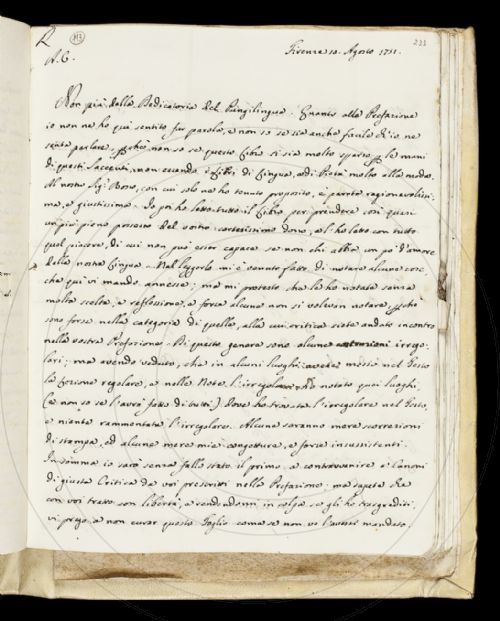 R 112 223
A. C. Firenze 10. Agosto 1751.
Non più della Dedicatoria del Pungilingua. Quanto alla Prefazione
io non ne ho quì sentito far parola, e non so se sia anche facile ch'io ne
senta parlare, perchè non so se questo Libro si sia molto sparso per le mani
di questi Saccenti, non essendo i Libri di Lingua, e di Pietà molto alla moda.
Al nostro Sig. Bono, con cui solo ne ho tenuto proposito, è parsa ragionevolissi-
ma, e giustissima. Io poi ho letto tutto il Libro per prendere così quasi
un più pieno possesso del vostro cortesissimo dono, e l'ho letto con tutto
quel piacere, di cui non può esser capace se non chi abbia un po' d'amore
della nostra Lingua. Nel leggerlo mi è venuto fatto di notare alcune cose,
che quì vi mando annesse; ma mi protesto che le ho notate senza
molta scelta, e reflessione, e forse alcune non si volevan notare, perchè
sono forse nella categoria di quelle, alla cui critica siete andato incontro
nella vostra Prefazione. Di questo genere sono alcune irrego-
lari; ma avendo veduto, che in alcuni luoghi avete messo nel Testo
la Lezione regolare, e nelle Note l'irregolare, ho notato quei luoghi,
(e non so se l'avrò fatto di tutti) dove ho trovata l'irregolare nel Testo,
e niente rammentata l'irregolare. Alcune saranno mere scorrezioni
di stampa, ed alcune mere mie congetture, e forse insussistenti.
In somma io sarò senza fallo stato il primo a contravvenire a' Canoni
di giusta Critica da voi prescritti nella Prefazione; ma sapete che
con voi tratto con libertà, e rendendomi in colpa se gli ho trasgrediti,
vi prego a non curar questo Foglio come se non ve l'avessi mandato.